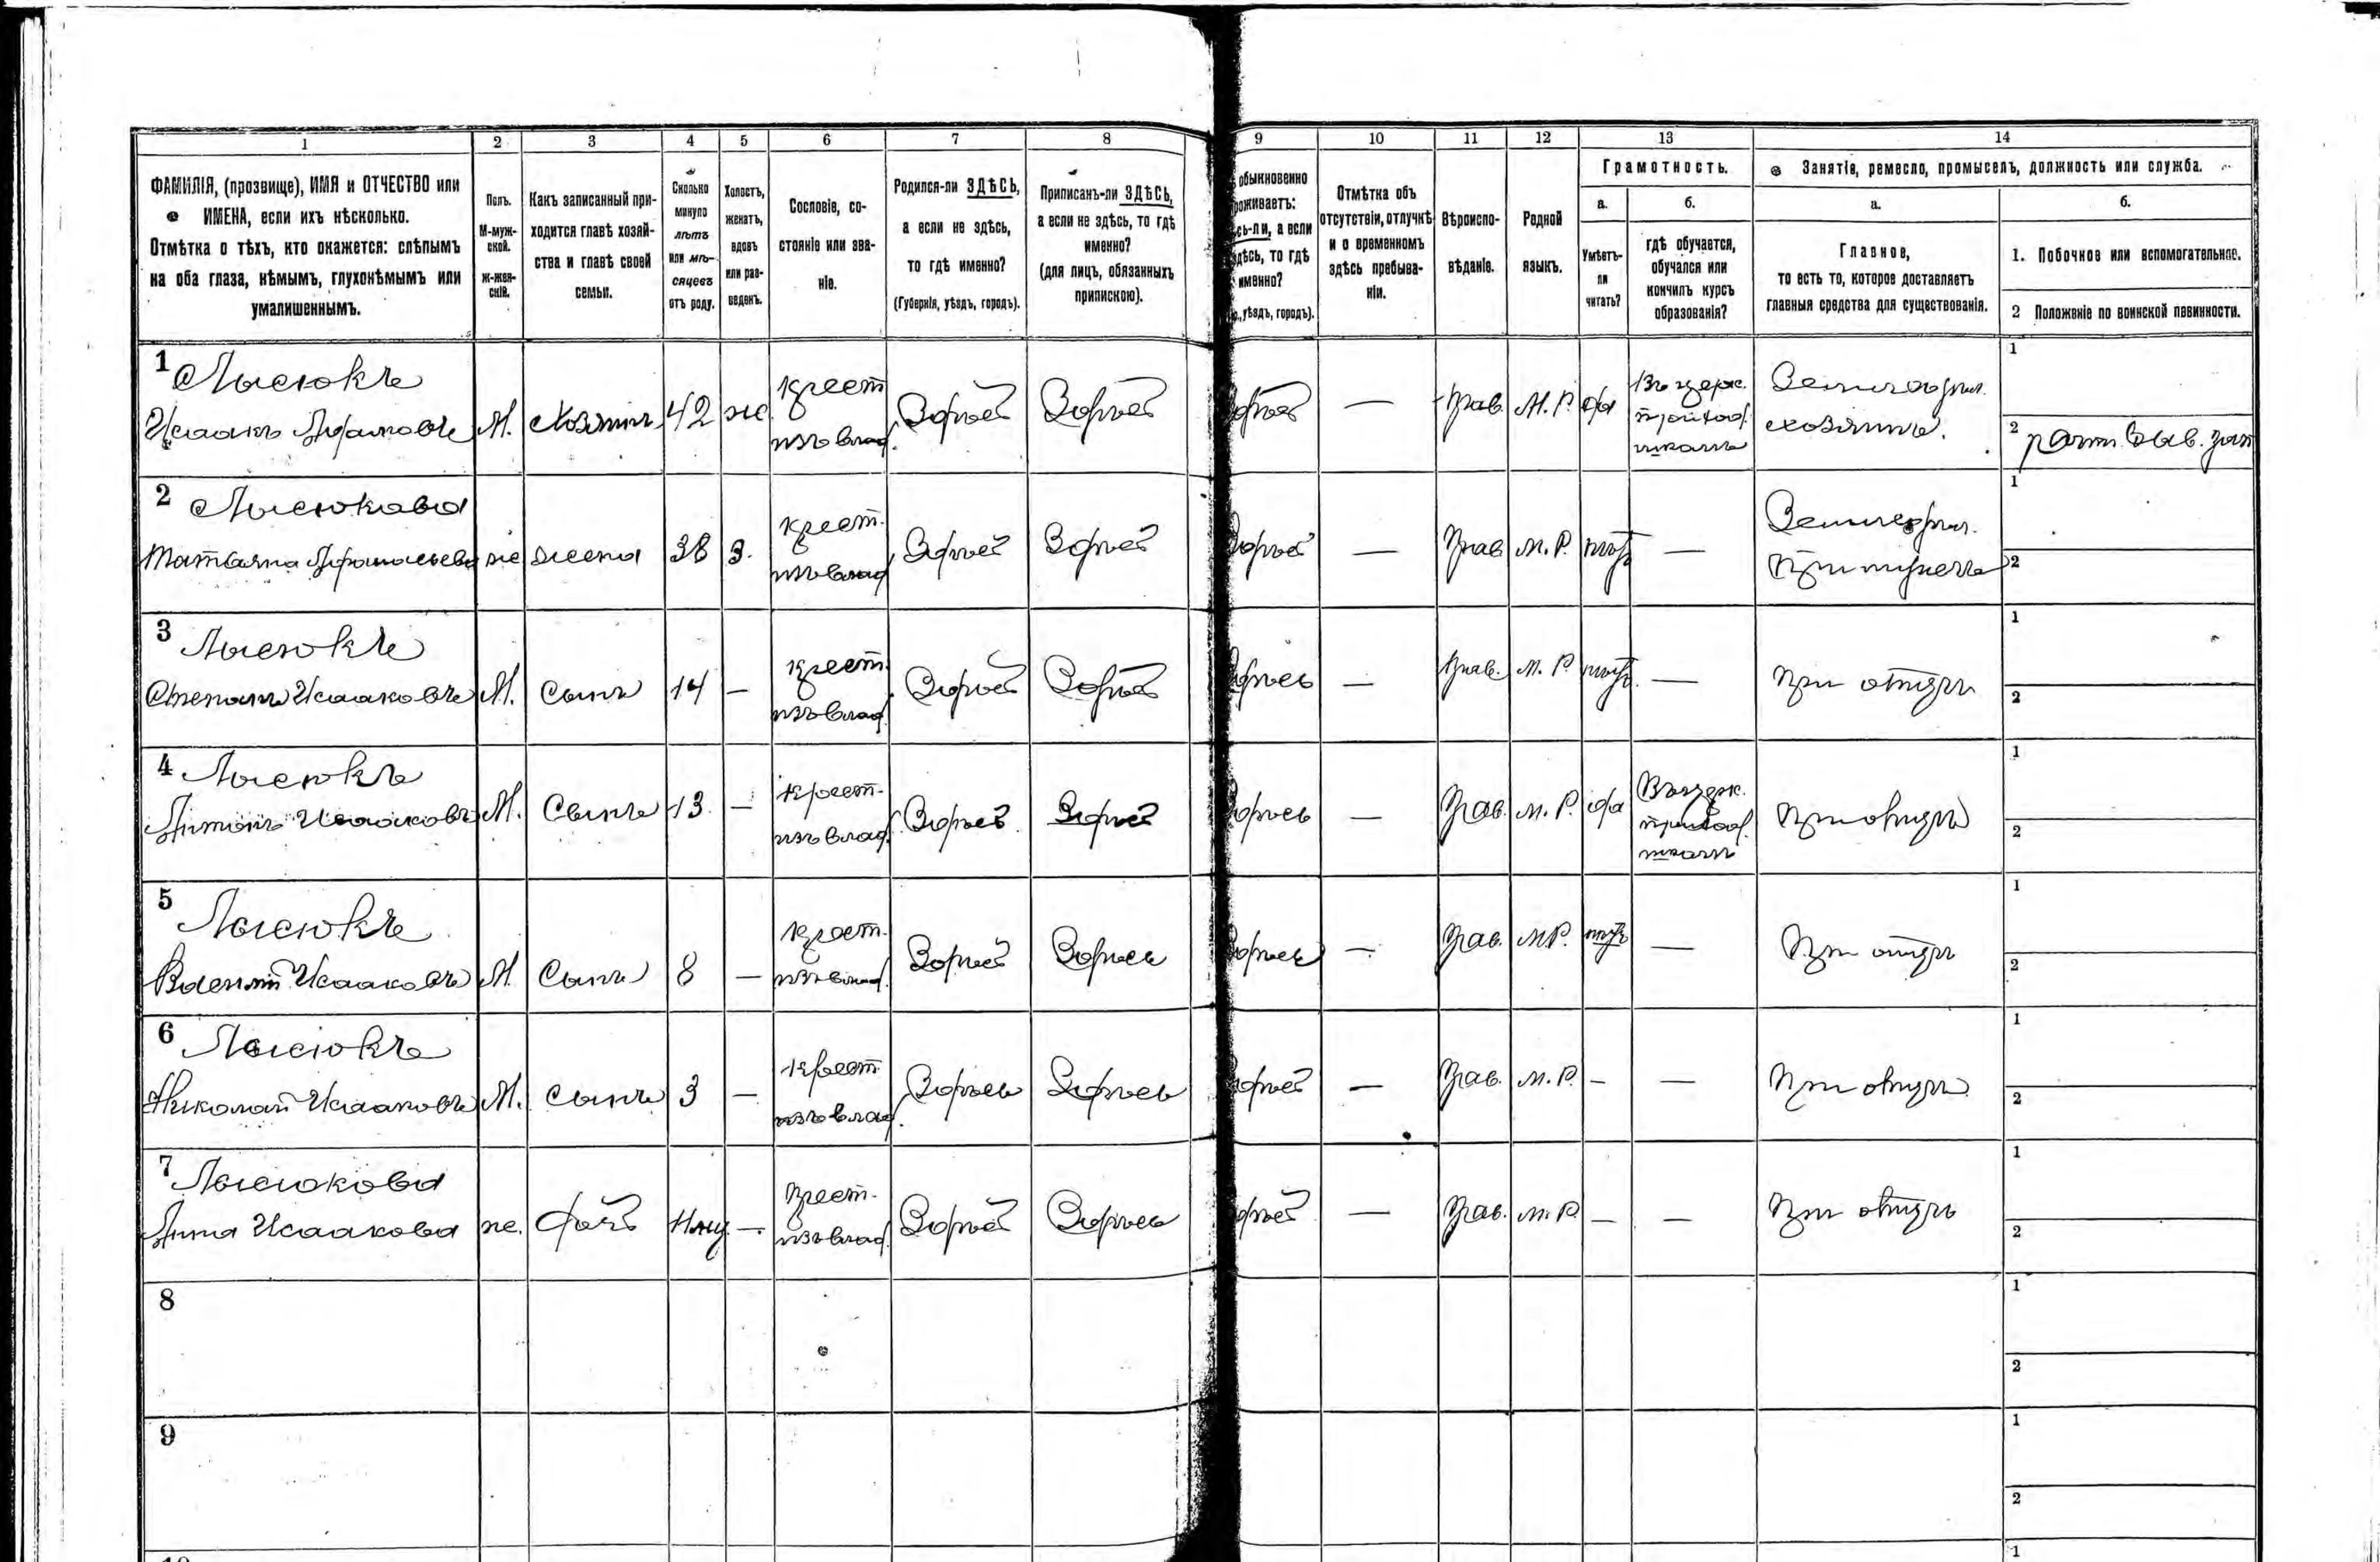 1 2 3 4 5 6 7 8 9 10 11 12 13 14
ФАМИЛІЯ, (прозвище), ИМЯ и ОТЧЕСТВО или
ИМЕНА, если ихъ нѣсколько.
Отмѣтка о тѣхъ, кто окажется: слѣпымъ
на оба глаза, нѣмымъ, глухонѣмымъ или
умалишеннымъ.
Полъ.
М-муж-
ской.
ж-жен-
скій.
Какъ записанный при-
ходится главѣ хозяй-
ства и главѣ своей
семьи.
Сколько
минуло
лѣтъ
или мѣ-
сяцевъ
отъ роду.
Холостъ,
женатъ,
вдовъ
или раз-
веденъ.
Сословіе, со-
стояніе или зва-
ніе.
Родился-ли ЗДѢСЬ,
а если не здѣсь,
то гдѣ именно?
(Губернія, уѣздъ, городъ).
Приписанъ-ли ЗДѢСЬ,
а если не здѣсь, то гдѣ
именно?
(для лицъ, обязанныхъ
припискою).
обыкновенно
роживаетъ:
сь-ли, а если
здѣсь, то гдѣ
именно?
уѣздъ, городъ).
Отмѣтка объ
отсутствіи, отлучкѣ
и о временномъ
здѣсь пребыва-
ніи.
Вѣроиспо-
вѣданіе.
Родной
языкъ.
Грамотность.
а.
Умѣетъ-
ли
читать?
б.
гдѣ обучается,
обучался или
кончилъ курсъ
образованія?
Занятіе, ремесло, промыселъ, должность или служба.
а.
Главное,
то есть то, которое доставляетъ
главныя средства для существованія.
б.
1. Побочное или вспомогательное.
2 Положеніе по воинской повинности.
1 Лысюкъ
Исаакъ М. Хозяинъ 42 же
крест
изъ влад.
Здѣсь Здѣсь здѣсь — Прав. М. Р. да
Въ церк.
приход.
школѣ
Земледѣл.
хозяинъ.
1
2
2 Лысюкова
Татьяна Афанасьева же жена 38 з.
крест.
изъ влад.
Здѣсь Здѣсь здѣсь — Прав М. Р. нѣтъ —
Земледѣл.
При мужѣ
1
2
3 Лысюкъ
Степанъ Исааковъ М. Сынъ 14 —
крест.
изъ влад.
Здѣсь Здѣсь здѣсь — Прав. М. Р. нѣтъ —
При отцѣ
1
2
4 Лысюкъ
Антонъ Исааковъ М. Сынъ 13 —
крест.
изъ влад.
Здѣсь Здѣсь здѣсь — Прав. М. Р. да
Въ церк.
приход.
школѣ
При отцѣ
1
2
5 Лысюкъ
Исааковъ М. Сынъ 8 —
крест.
изъ влад.
Здѣсь Здѣсь здѣсь — Прав. М Р. нѣтъ —
При отцѣ
1
2
6 Лысюкъ
Николай Исааковъ М. сынъ 3 —
крест.
изъ влад.
Здѣсь Здѣсь здѣсь — Прав. М. Р. — —
При отцѣ
1
2
7 Лысюкова
Анна Исаакова же. дочь —
крест.
изъ влад.
Здѣсь Здѣсь здѣсь — Прав. М. Р. — —
При отцѣ
1
2
8
1
2
9
1
2
1